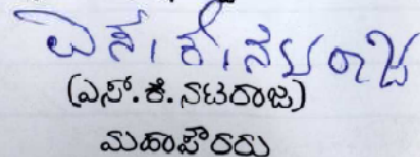 ಎಸ್. ಕೆ. ನಟರಾಜ
(ಎಸ್.ಕೆ. ನಟರಾಜ)
ಮಹಾಪೌರರು